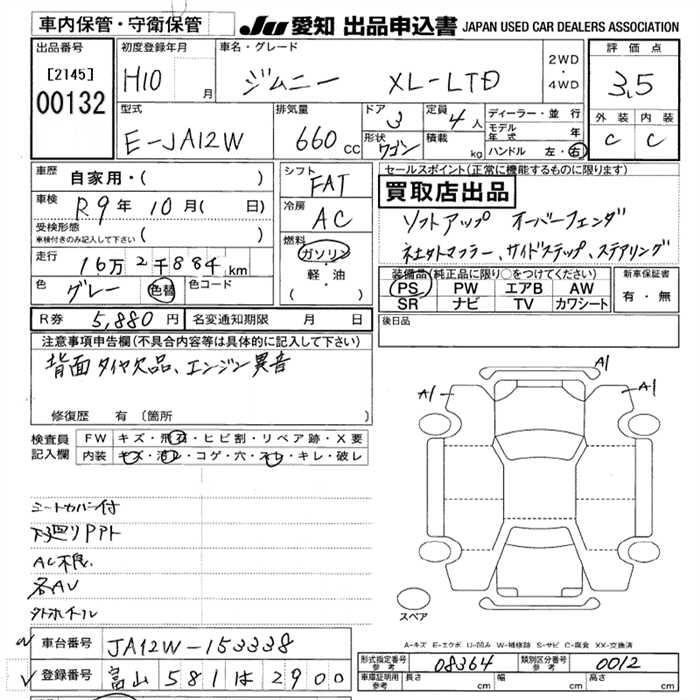 車内保管・守衛保管
JU 愛知 出品申込書 JAPAN USED CAR DEALERS ASSOCIATION
出品番号
[2145]
00132
初度登録年月
H10 月
車名・グレード
ジムニー XL-LTD
2WD
・
4WD
評価点
3.5
外装 内装
C C
型式
E-JA12W
排気量
660 CC
ドア
3
形状
ワゴン
定員
4人
積載
kg
ディーラー・並行
モデル年式 年
ハンドル 左・右
車歴
自家用・( )
車検
R9年10月( 日)
受検形態
車検付きのみ記入して下さい ( )
走行
16万2千884km
色
グレー
色替
色コード
シフト
FAT
冷房
AC
燃料
ガソリン
・
軽・油
( )
セールスポイント(正常に機能するものに限ります)
買取店出品
ソフトアップ オーバーフェンダ
社外マフラー、サイドステップ、ステアリング
装備品(純正品に限り○をつけてください)
PS PW エアB AW
SR ナビ TV カワシート
新車保証書
有・無
R券 5,880円 名変通知期限 月 日
後日品
注意事項申告欄(不具合内容等は具体的に記入して下さい)
背面タイヤ欠品、エンジン異音
修復歴 有(箇所
検査員
記入欄
FW キズ・飛石・ヒビ割・リペア跡・X要
内装 キズ・汚レ・コゲ・穴・スレ・キレ・破レ
シートカバー付
下廻りPアト
AC不良
各AU
外ホイール
A1
A1
A1
スペア
A-キズ E-エクボ U-凹み W-補修跡 S-サビ C-腐食 XX-交換済
車台番号 JA12W-153338
登録番号 富山 581 は 2900
形式指定番号
参考
08364
類別区分番号
参考
0012
車庫証明用
参考
長さ cm 幅 cm 高さ cm